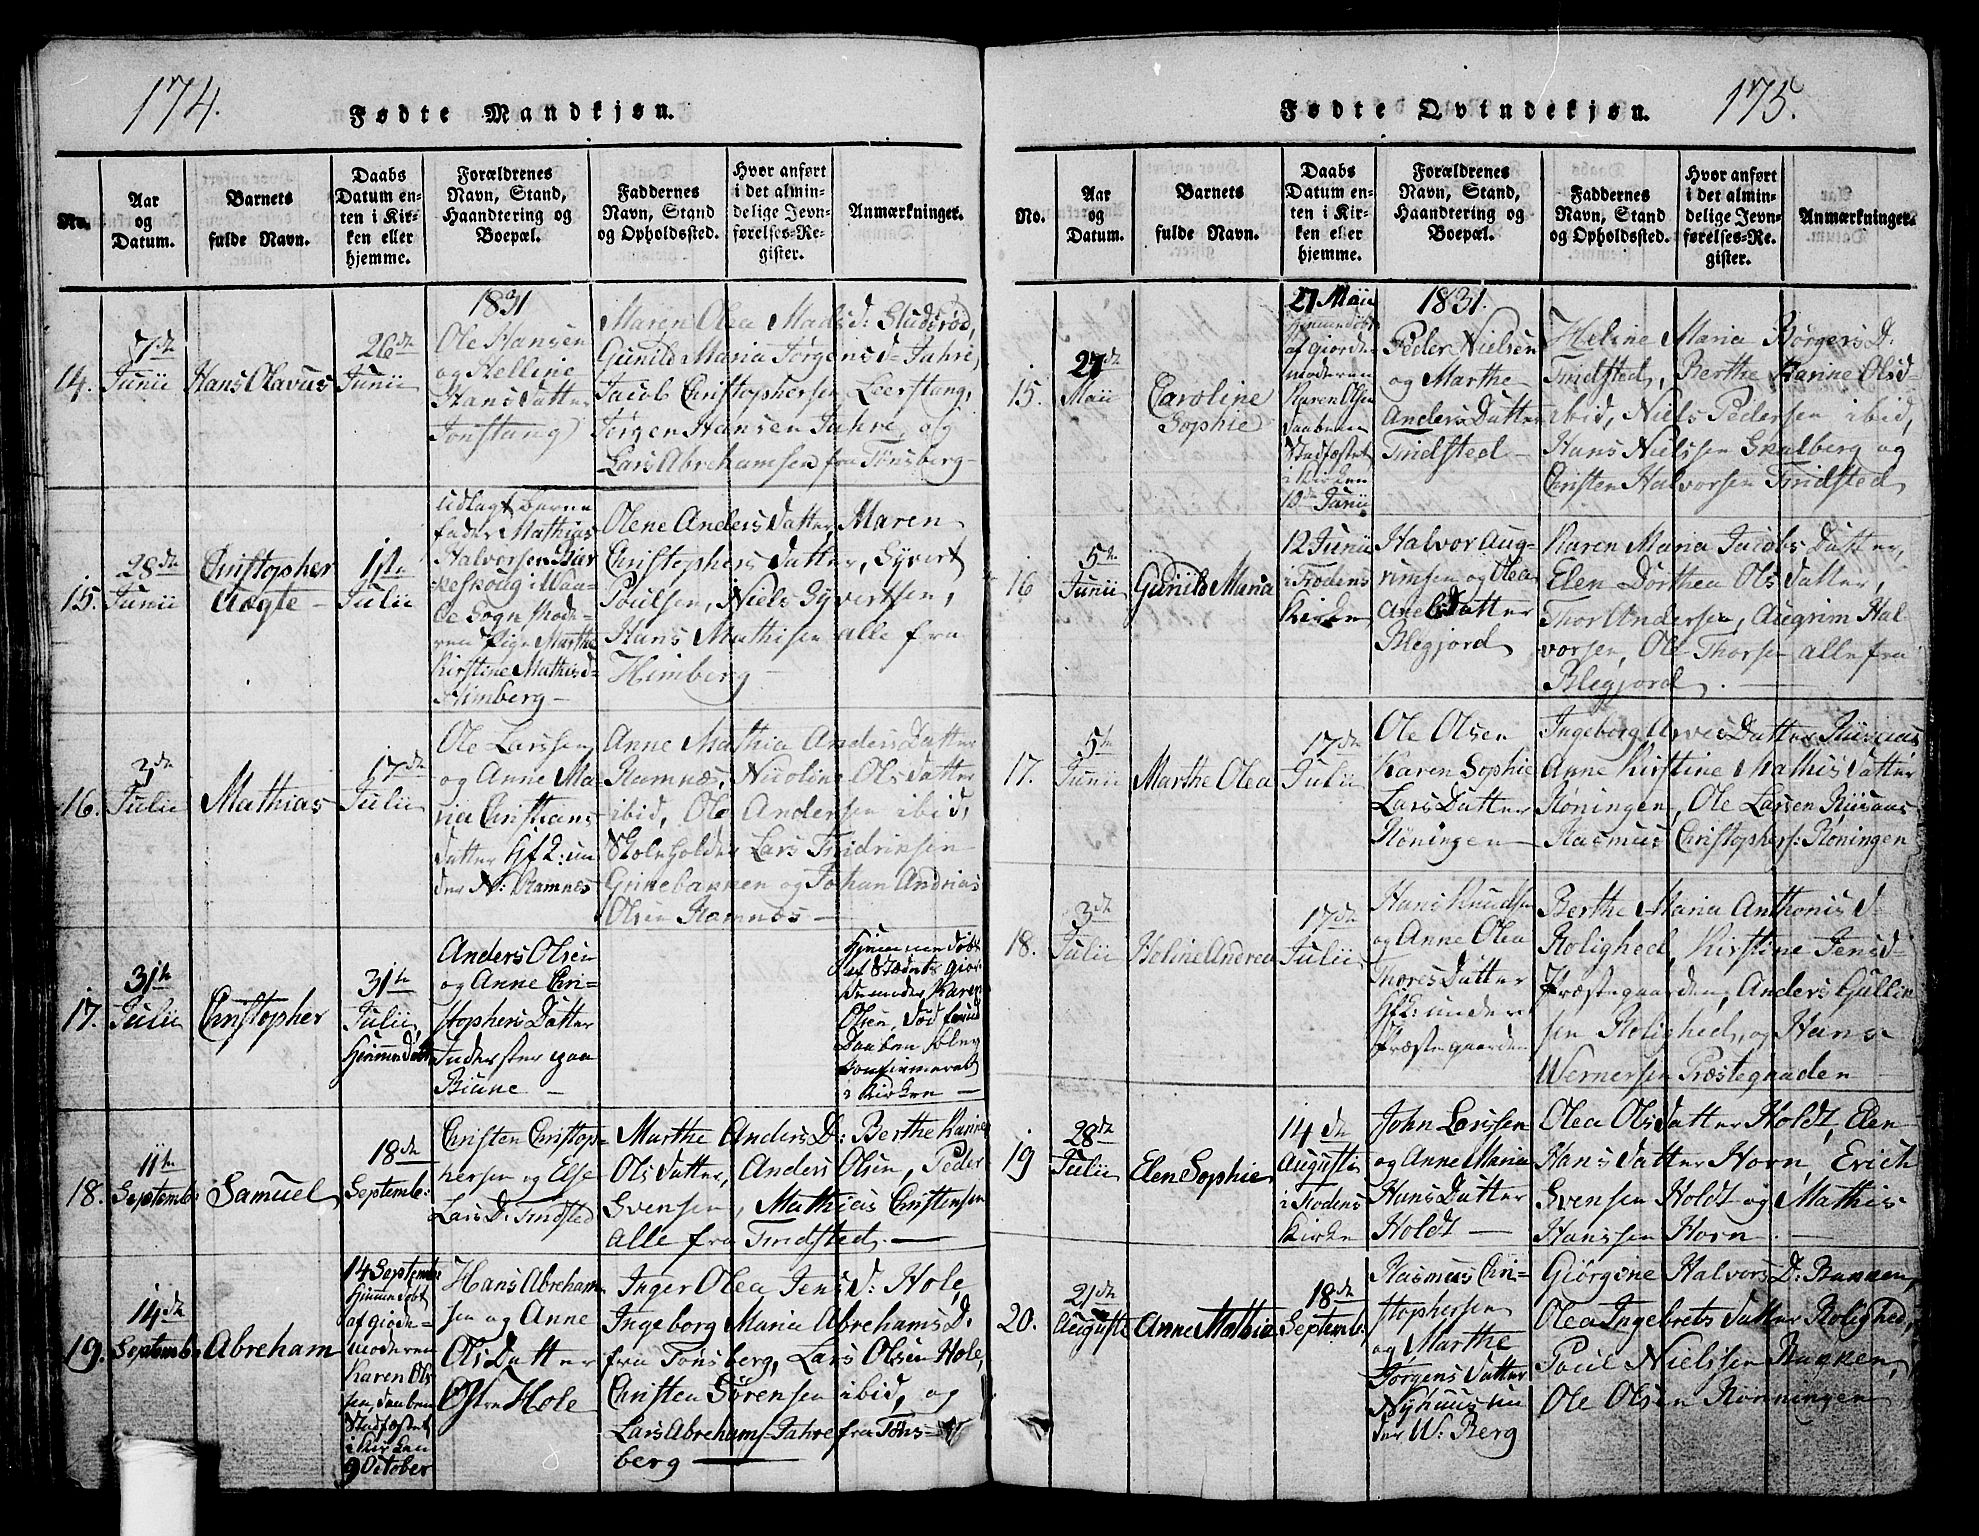 174.
Fødte Mandkjøn.
No.
Aar
og
Datum.
Barnets
fulde Navn.
Daabs
Datum en-
ten i Kir-
ken eller
hjemme.
Forældrenes
Navn, Stand,
Haandtering og
Boepæl.
Faddernes
Navn, Stand
og Opholdssted.
Hvor anført
i det almin-
delige Jevn-
førelses-Re-
gister.
Anmærkninger.
1831
14.
7de
Junii
Hans Olavus
26de
Junii
Ole Hansen
og Helline
Hansdatter
Jonstang
Maren Olea Madsd: Sludsrød,
Gunild Maria Jørgensd- Jahre,
Jacob Christophersen Leerstang,
Jørgen Hansen Jahre, og
Lars Abrehamsen fra Tønsberg-
15.
28de
Junii
Christopher
Aagte -
1te
Julii
Udlagt Barne
fader Mathias
Halvorsen
Sogn Mode-
ren Pige Marthe
Kirstine Mathisd-
Himberg -
Olene Anders Datter, Maren
Christophers Datter, Syvert
Poulsen, Niels Syvertsen,
Hans Mathisen alle fra
Himberg -
16.
3de
Julii
Mathias
17de
Julii
Ole Larssen
og Anne Ma-
ria Christians
datter Hf2: un
der N: Ramnes
Anne Mathia Anders Datter
Ramnæs, Nicoline Olsdatter
ibid, Ole Andersen ibid,
Skoleholder Lars Fredriksen
Grinebakken og Johan Andrias
Olsen Ramnes -
17.
31te
Julii
Christopher
31te
Julii,
Hjemmedøbt
Anders Olsen
og Anne Chri-
stophers Datter
Inderster paa
Biune -
Hjemmedøbt
af Stædets gior-
demoder Karen
Olsen, død forind
Daaben blev
confirmeret
i Kirken -
18.
11te
Septembr
Samuel
18de
Septemb:
Christen Christop-
hersen og Else
Lars D: Tindsted
Marthe Anders D: Berthe Karine
Olsdatter, Anders Olsen, Peder
Svensen, Mathias Christensen
alle fra Tindsted. -
19.
14de
Septemb:
Abreham
14 Septemb:
Hjemmedøbt
af giorde-
moderen
Karen Ol-
sen, daaben
Stadfæstet
i Kirken
9 October
Hans Abreham-
sen og Anne
Olsdatter
Østre Hole
Inger Olea Jensd: Hole,
Ingeborg Maria Abrehams D.
fra Tønsberg, Lars Olsen Hole,
Christen Sørensen ibid, og
Lars Abrehams- Jahre fra Tøns-
berg -
175.
Fødte Qvindekjøn.
No.
Aar
og
Datum.
Barnets
fulde Navn.
Daabs
Datum en-
ten i Kir-
ken eller
hjemme.
Forældrenes
Navn, Stand,
Haandtering og
Boepæl.
Faddernes
Navn, Stand
og Opholdssted.
Hvor anført
i det almin-
delige Jevn-
førelses-Re-
gister.
Anmærkninger.
1831.
15.
27de
Maii
Caroline
Sophie
27 Maii
Hjemmedøbt
af giorde
moderen
Karen Olsen
daaben
Stadfæstet
i Kirken
10de Junii
Peder Nielsen
og Marthe
Anders Datter
Tindsted -
Heline Maria Børgers D.
Tindsted, Berthe Hanne Olsd-
ibid, Niels Pedersen ibid,
Hans Nielssen Skalberg og
Christen Halvorsen Tindsted
16
5te
Junii
Gunild Maria
12 Junii
i Fødens
Kirken
Halvor Aug-
rimsen og Olea
Axels Datter
Blegjord
Karen Maria Jacobs Datter,
Elen Dorthea Ols Datter,
Thor Andersen, Augrim Hal-
vorsen, Ole Thorsen alle fra
Blegjord. -
17.
5te
Junii
Marthe Olea
17de
Julii
Ole Olsen
Karen Sophie
Lars Datter
Røningen -
Ingeborg Arves Datter Riisaas
Anne Kirstine Mathis Datter
Røningen, Ole Larsen Riisaas
Rasmus Christophers: Røningen
18.
3de
Julii
Holine Andrea
17de
Julii
Hans Knudsen
og Anne Olea
Thores Datter
Hf2: under
Præstegaarden
Berthe Maria Anthonis d-
Rolighed, Kirstine Jensd-
Præstegaarden, Anders Gullik-
sen Rolighed, og Hans
Wernersen Præstegaaden -
19
28de
Julii
Elen Sophie
14de
Auguste
i Fodens
Kirke
John Larssen
og Anne Maria
Hans Datter
Holdt -
Olea Olsdatter Holdt, Elen
Hans datter Horn, Erich
Svensen Holdt og Mathis
Hanssen Horn. -
20.
21de
Auguste
Anne Mathia
18de
Septemb:
Rasmus Chri-
stophersen
og Marthe
Jørgens Datter
Nyhuus un
der W: Berg
Giørgine Halvors D: Bakken,
Olea Ingebrets datter Rolighed,
Poul Nielssen Bakken,
Ole Olsen Rønningen